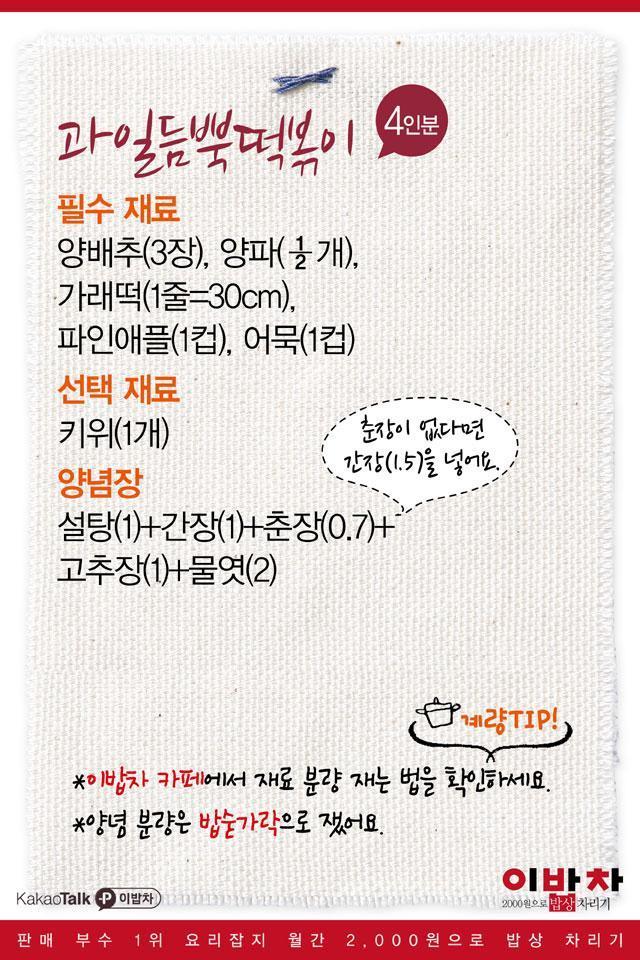 과일듬뿍떡볶이 4인분
필수 재료
양배추(3장), 양파(½개),
가래떡(1줄=30cm),
파인애플(1컵), 어묵(1컵)
선택 재료
키위(1개)
춘장이 없다면
간장(1.5)을 넣어요.
양념장
설탕(1)+간장(1)+춘장(0.7)+
고추장(1)+물엿(2)
계량TIP!
*이밥차 카페에서 재료 분량 재는 법을 확인하세요.
*양념 분량은 밥숟가락으로 쟀어요.
KakaoTalk P 이밥차
이밥차
2000원으로 밥상 차리기
판매 부수 1위 요리잡지 월간 2,000원으로 밥상 차리기